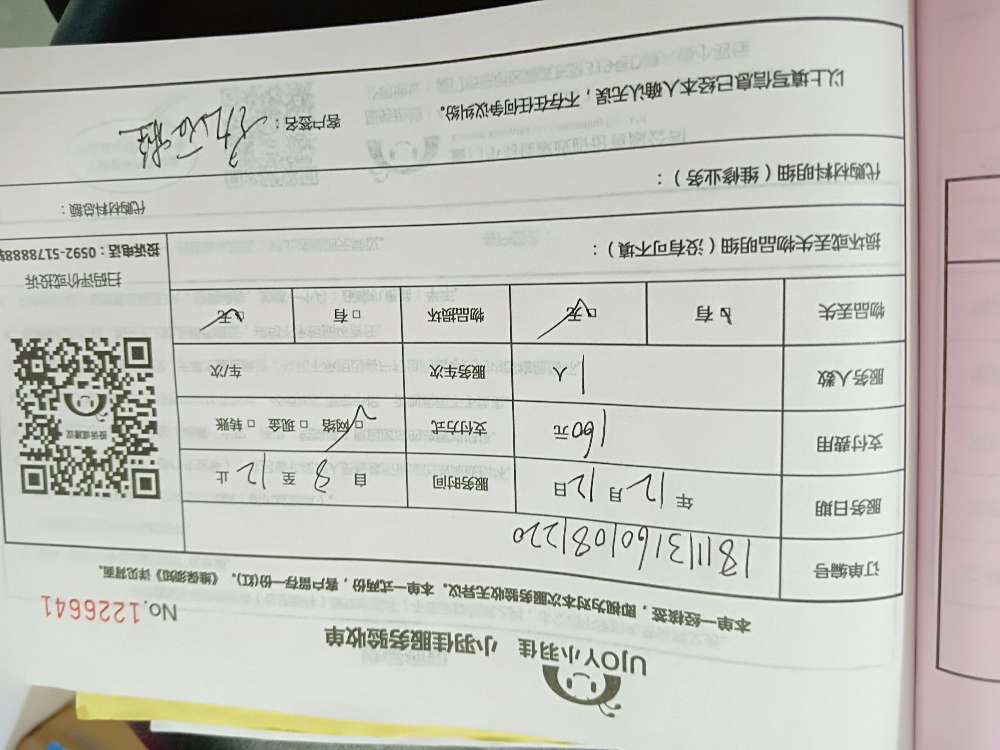 UJOY小羽佳 小羽佳服务验收单
No.1226641
本单一经接签，即视为对本次服务验收无异议。本单一式两份，客户留存一份(红)。《维保须知》详见背面。
订单编号 181131601081220
服务日期 年12月12日 服务时间 自8至12止
支付费用 160元 支付方式 □网络 □现金 □转账
服务人数 1人 服务车次 车/次
物品丢失 □有 □无 物品损坏 □有 □无
扫码评价或投诉
投诉电话：0592-5178888
损坏或丢失物品明细（没有可不填）：
代购材料明细（维修业务）：
代购材料总额：
以上填写信息已经本人确认无误，不存在任何争议纠纷。
客户签名：